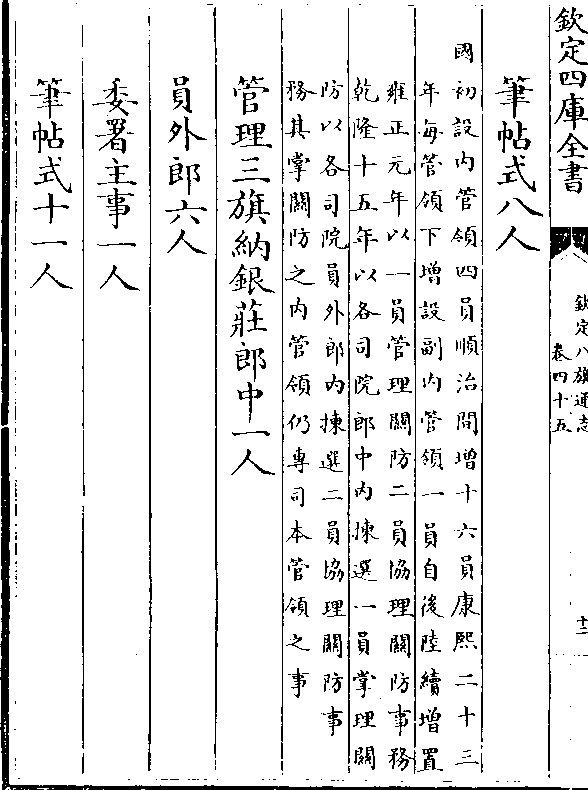 欽定四庫全書
欽定八旗通志
卷四十五
十二
筆帖式八人
國初設內管領四員順治間增十六員康熙二十三
年每管領下增設副內管領一員自後陸續增置
雍正元年以一員管理關防二員協理關防事務
乾隆十五年以各司院郎中內揀選一員掌理關
防以各司院員外郎內揀選二員協理關防事
務其掌關防之內管領仍專司本管領之事
管理三旗納銀莊郎中一人
員外郎六人
委署主事一人
筆帖式十一人